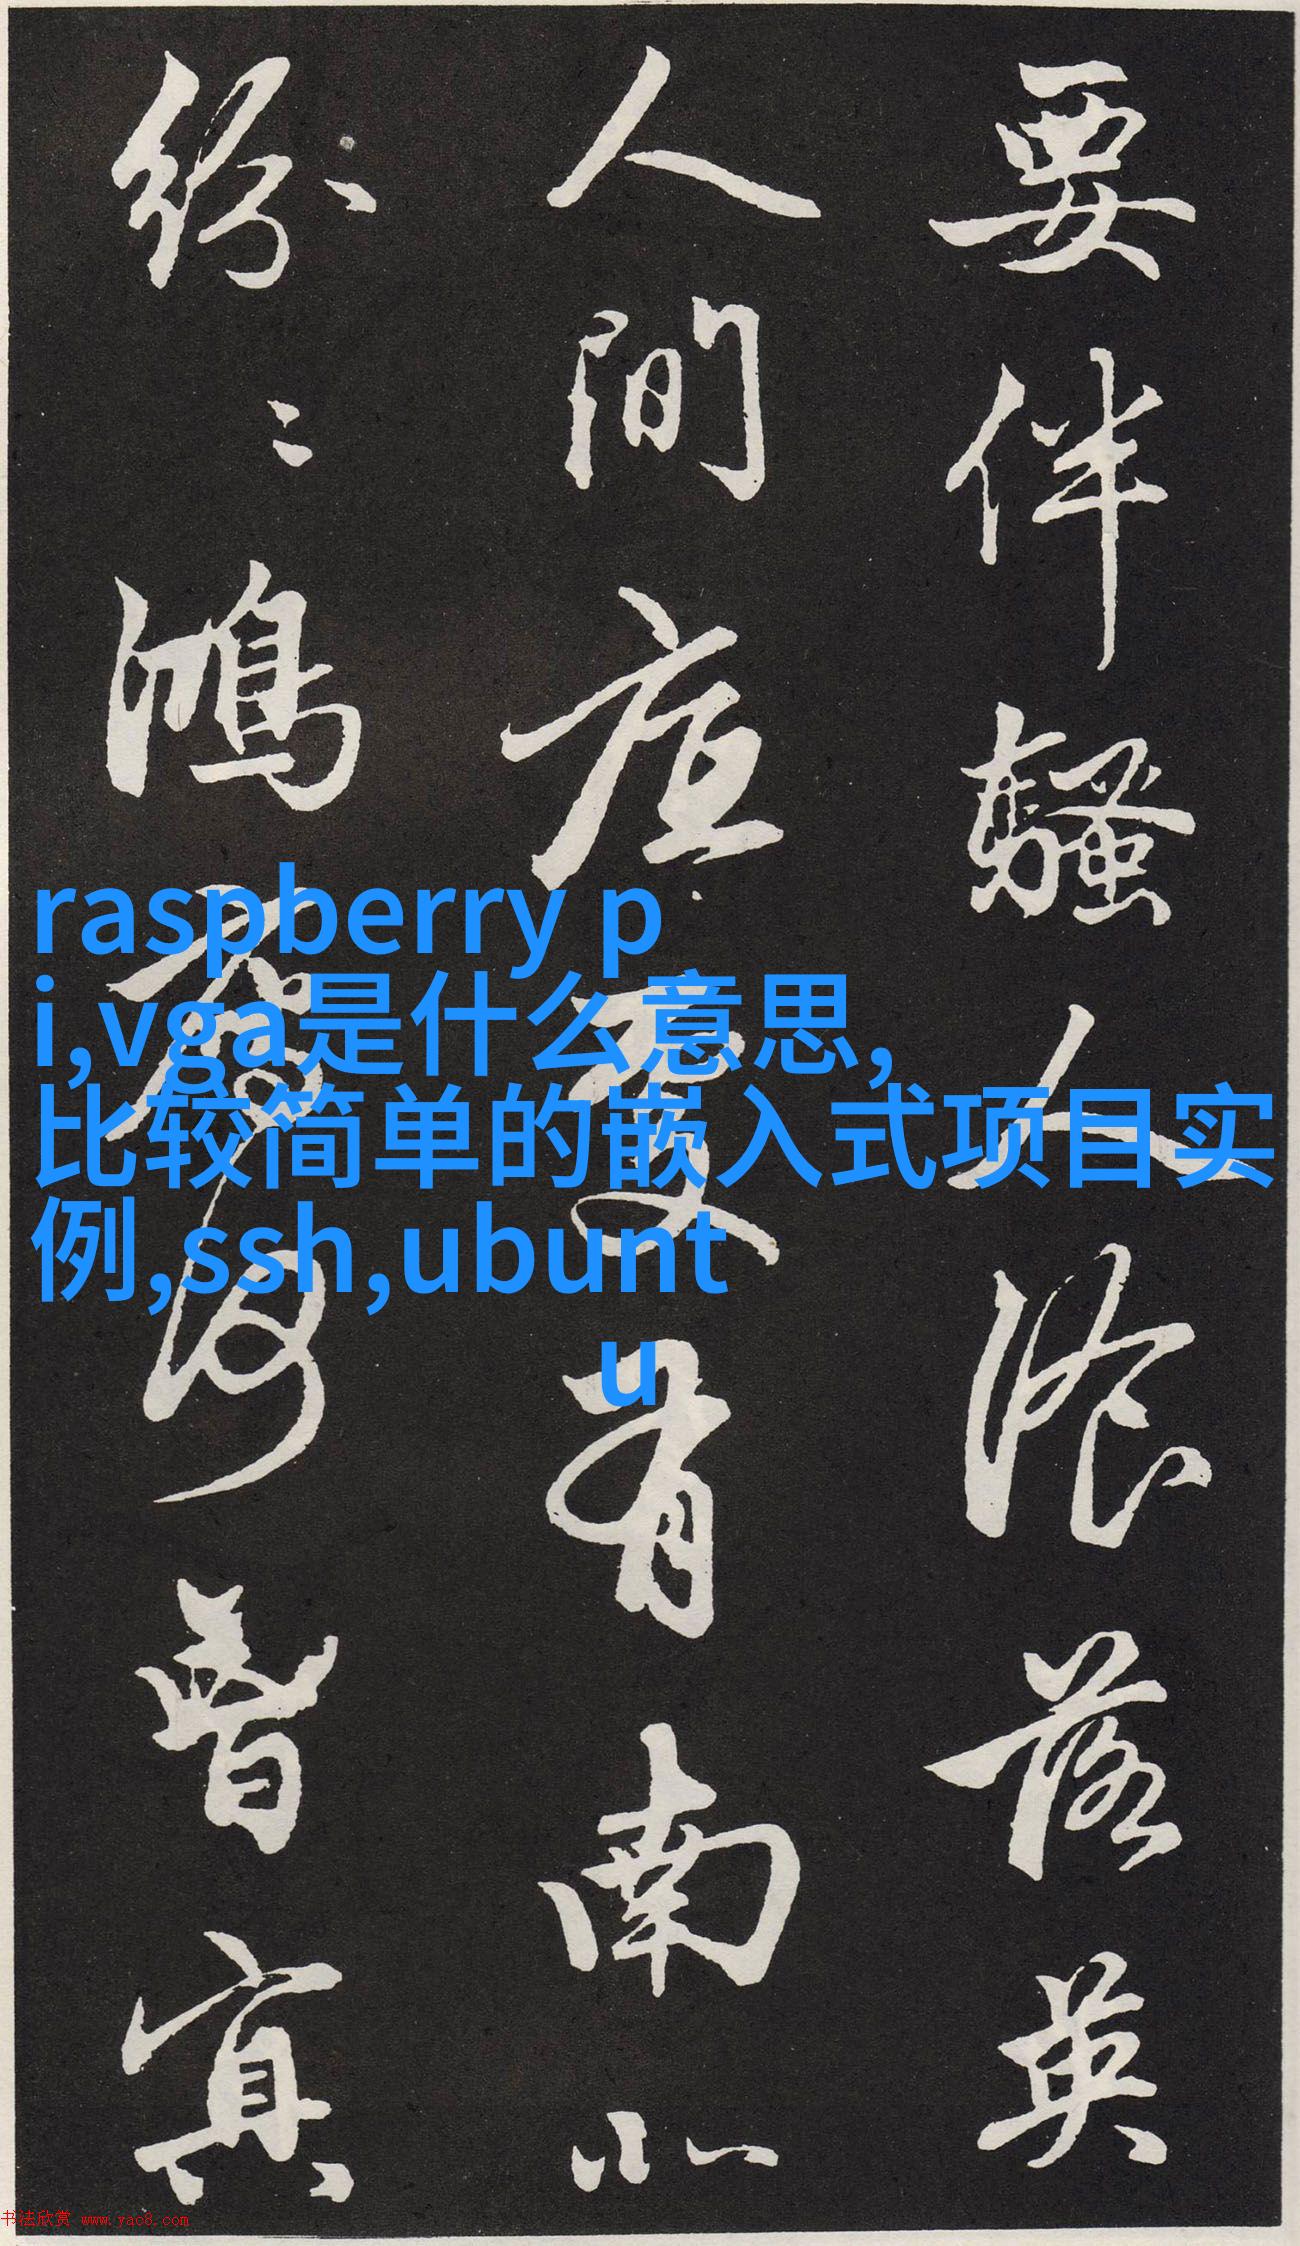 要伴騷人湌落英
人間底處有南北
紛〻鴻鴈何曾冥
raspberry p
i,vga是什么意思,
比较简单的嵌入式项目实
例,ssh,ubunt
u
书法欣赏 www.yac8.com